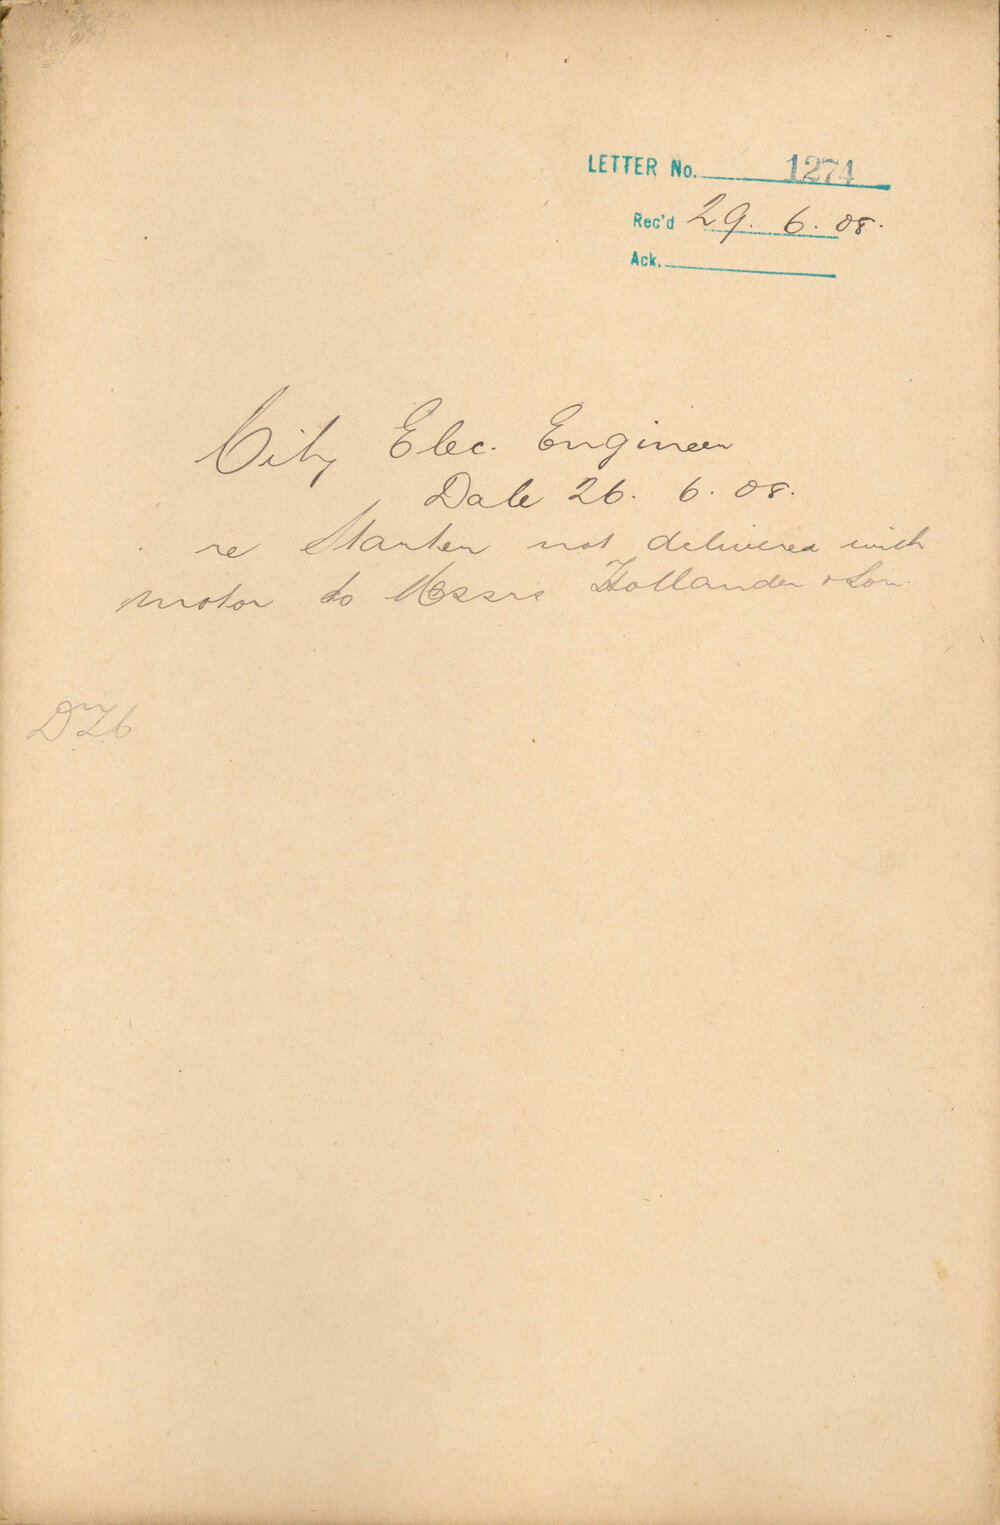 LETTER No. 1274
Rec'd 29. 6. 08.
Ack.
City Elec. Engineer
Date 26. 6. 08.
re Starter not delivered with
motor to Messrs Hollander & Son.